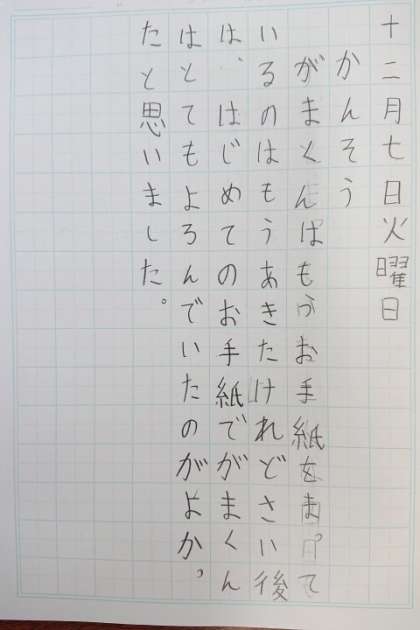 十二月七日火曜日
かんそう
がまくんはもうお手紙をまって
いるのはもうあきたけれどさい後
は、はじめてのお手紙でがまくん
はとてもよろんでいたのがよかっ
たと思いました。